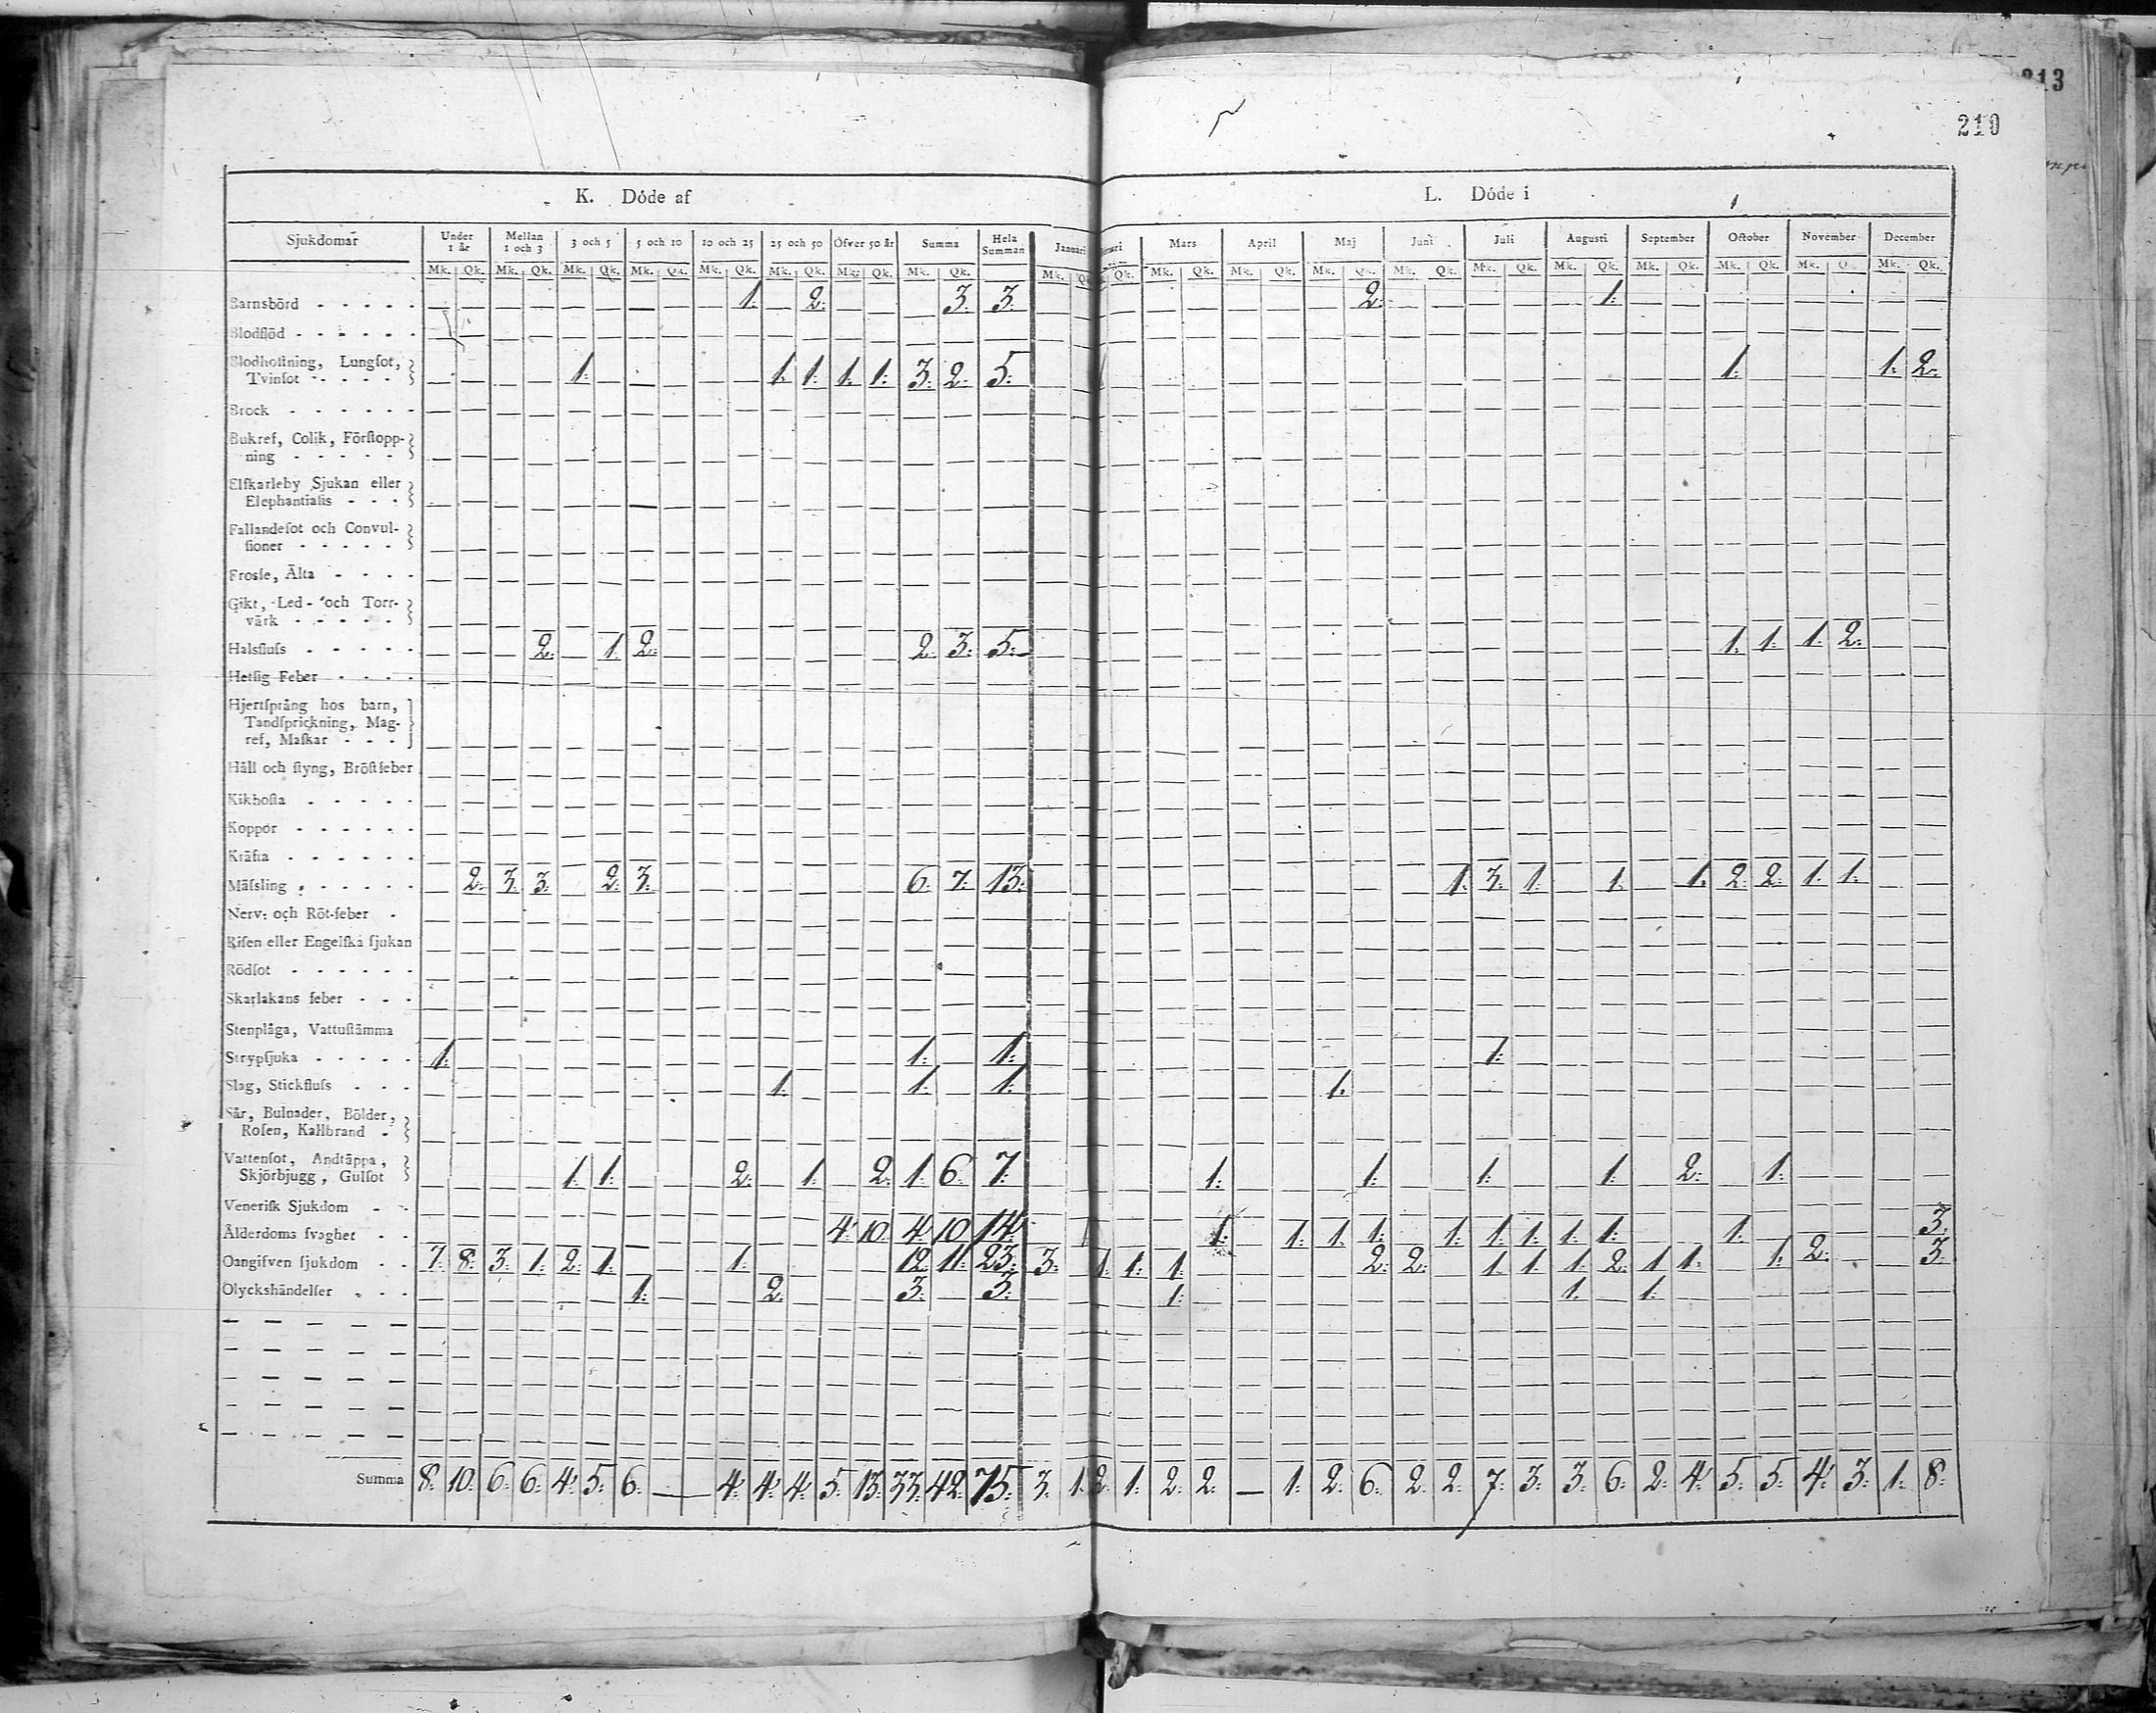 213
219
K. Döde af L. Döde i
Sjukdomar Under 1 år Mellan 1 och 3 3 och 5 5 och 10 10 och 25 25 och 50 Öfver 50 år Summa Hela Summan Januari Mars April Maj Juni Juli Augusti September October November December
Mk. Qk. Mk. Qk. Mk. Qk. Mk. Qk. Mk. Qk. Mk. Qk. Mk. Qk. Mk. Qk. Mk. Qk. Mk. Qk. Mk. Qk. Mk. Qk. Mk. Qk. Mk. Qk. Mk. Qk. Mk. Qk. Mk. Qk. Mk. Mk. Qk.
Barnsbörd - - - - - 1. 2. 3. 3. 2. 1.
Blodflöd - - - - - -
Blodhostning, Lungsot,
Tvinsot - - - - - 1. 1. 1. 1. 1. 3. 2. 5. 1. 1. 2.
Brock - - - - - -
Bukref, Colik, Förstopp-
ning - - - - -
Elfkarleby Sjukan eller
Elephantiasis - - -
Fallandesot och Convul-
sioner - - - - -
Frossa, Älta - - - -
Gikt, Led- och Torr-
värk - - - - -
Halsfluss - - - - - 2. 1. 2. 2. 3. 5. 1. 1. 1. 2.
Hetsig Feber - - - -
Hjertsprång hos barn,
Tandsprickning, Mag-
ref, Maskar - - -
Håll och styng, Bröstfeber
Kikhosta - - - - -
Koppor - - - - - -
Kräfta - - - - - -
Mässling - - - - - - 2. 3. 3. 2. 3. 6. 7. 13. 1. 3. 1. 1. 1. 2. 2. 1. 1.
Nerv- och Röt-feber -
Risen eller Engelska sjukan
Rödsot - - - - - -
Skarlakans feber - - -
Stenplåga, Vattustämma
Strypsjuka - - - - - 1. 1. 1. 1.
Slag, Stickfluss - - - 1. 1. 1. 1.
Sår, Bulnader, Bölder,
Rosen, Kallbrand -
Vattensot, Andtäppa,
Skjörbjugg, Gulsot 1. 1. 2. 1. 2. 1. 6. 7. 1. 1. 1. 1. 2. 1.
Venerisk Sjukdom - -
Ålderdoms svaghet - - 4. 10. 4. 10. 14. 1. 1. 1. 1. 1. 1. 1. 1. 1. 1. 3.
Oangifven sjukdom - - 7. 8. 3. 1. 2. 1. 1. 12. 11. 23. 3. 1. 1. 1. 2. 2. 1. 1. 1. 2. 1. 1. 1. 2. 3.
Olyckshändelser - - - 1. 2. 3. 3. 1. 1. 1.
Summa 8. 10. 6. 6. 4. 5. 6. — 4. 4. 4. 5. 13. 33. 42. 75. 3. 1. 2. 1. 2. 2. — 1. 2. 6. 2. 2. 7. 3. 3. 6. 2. 4. 5. 5. 4. 3. 1. 8.